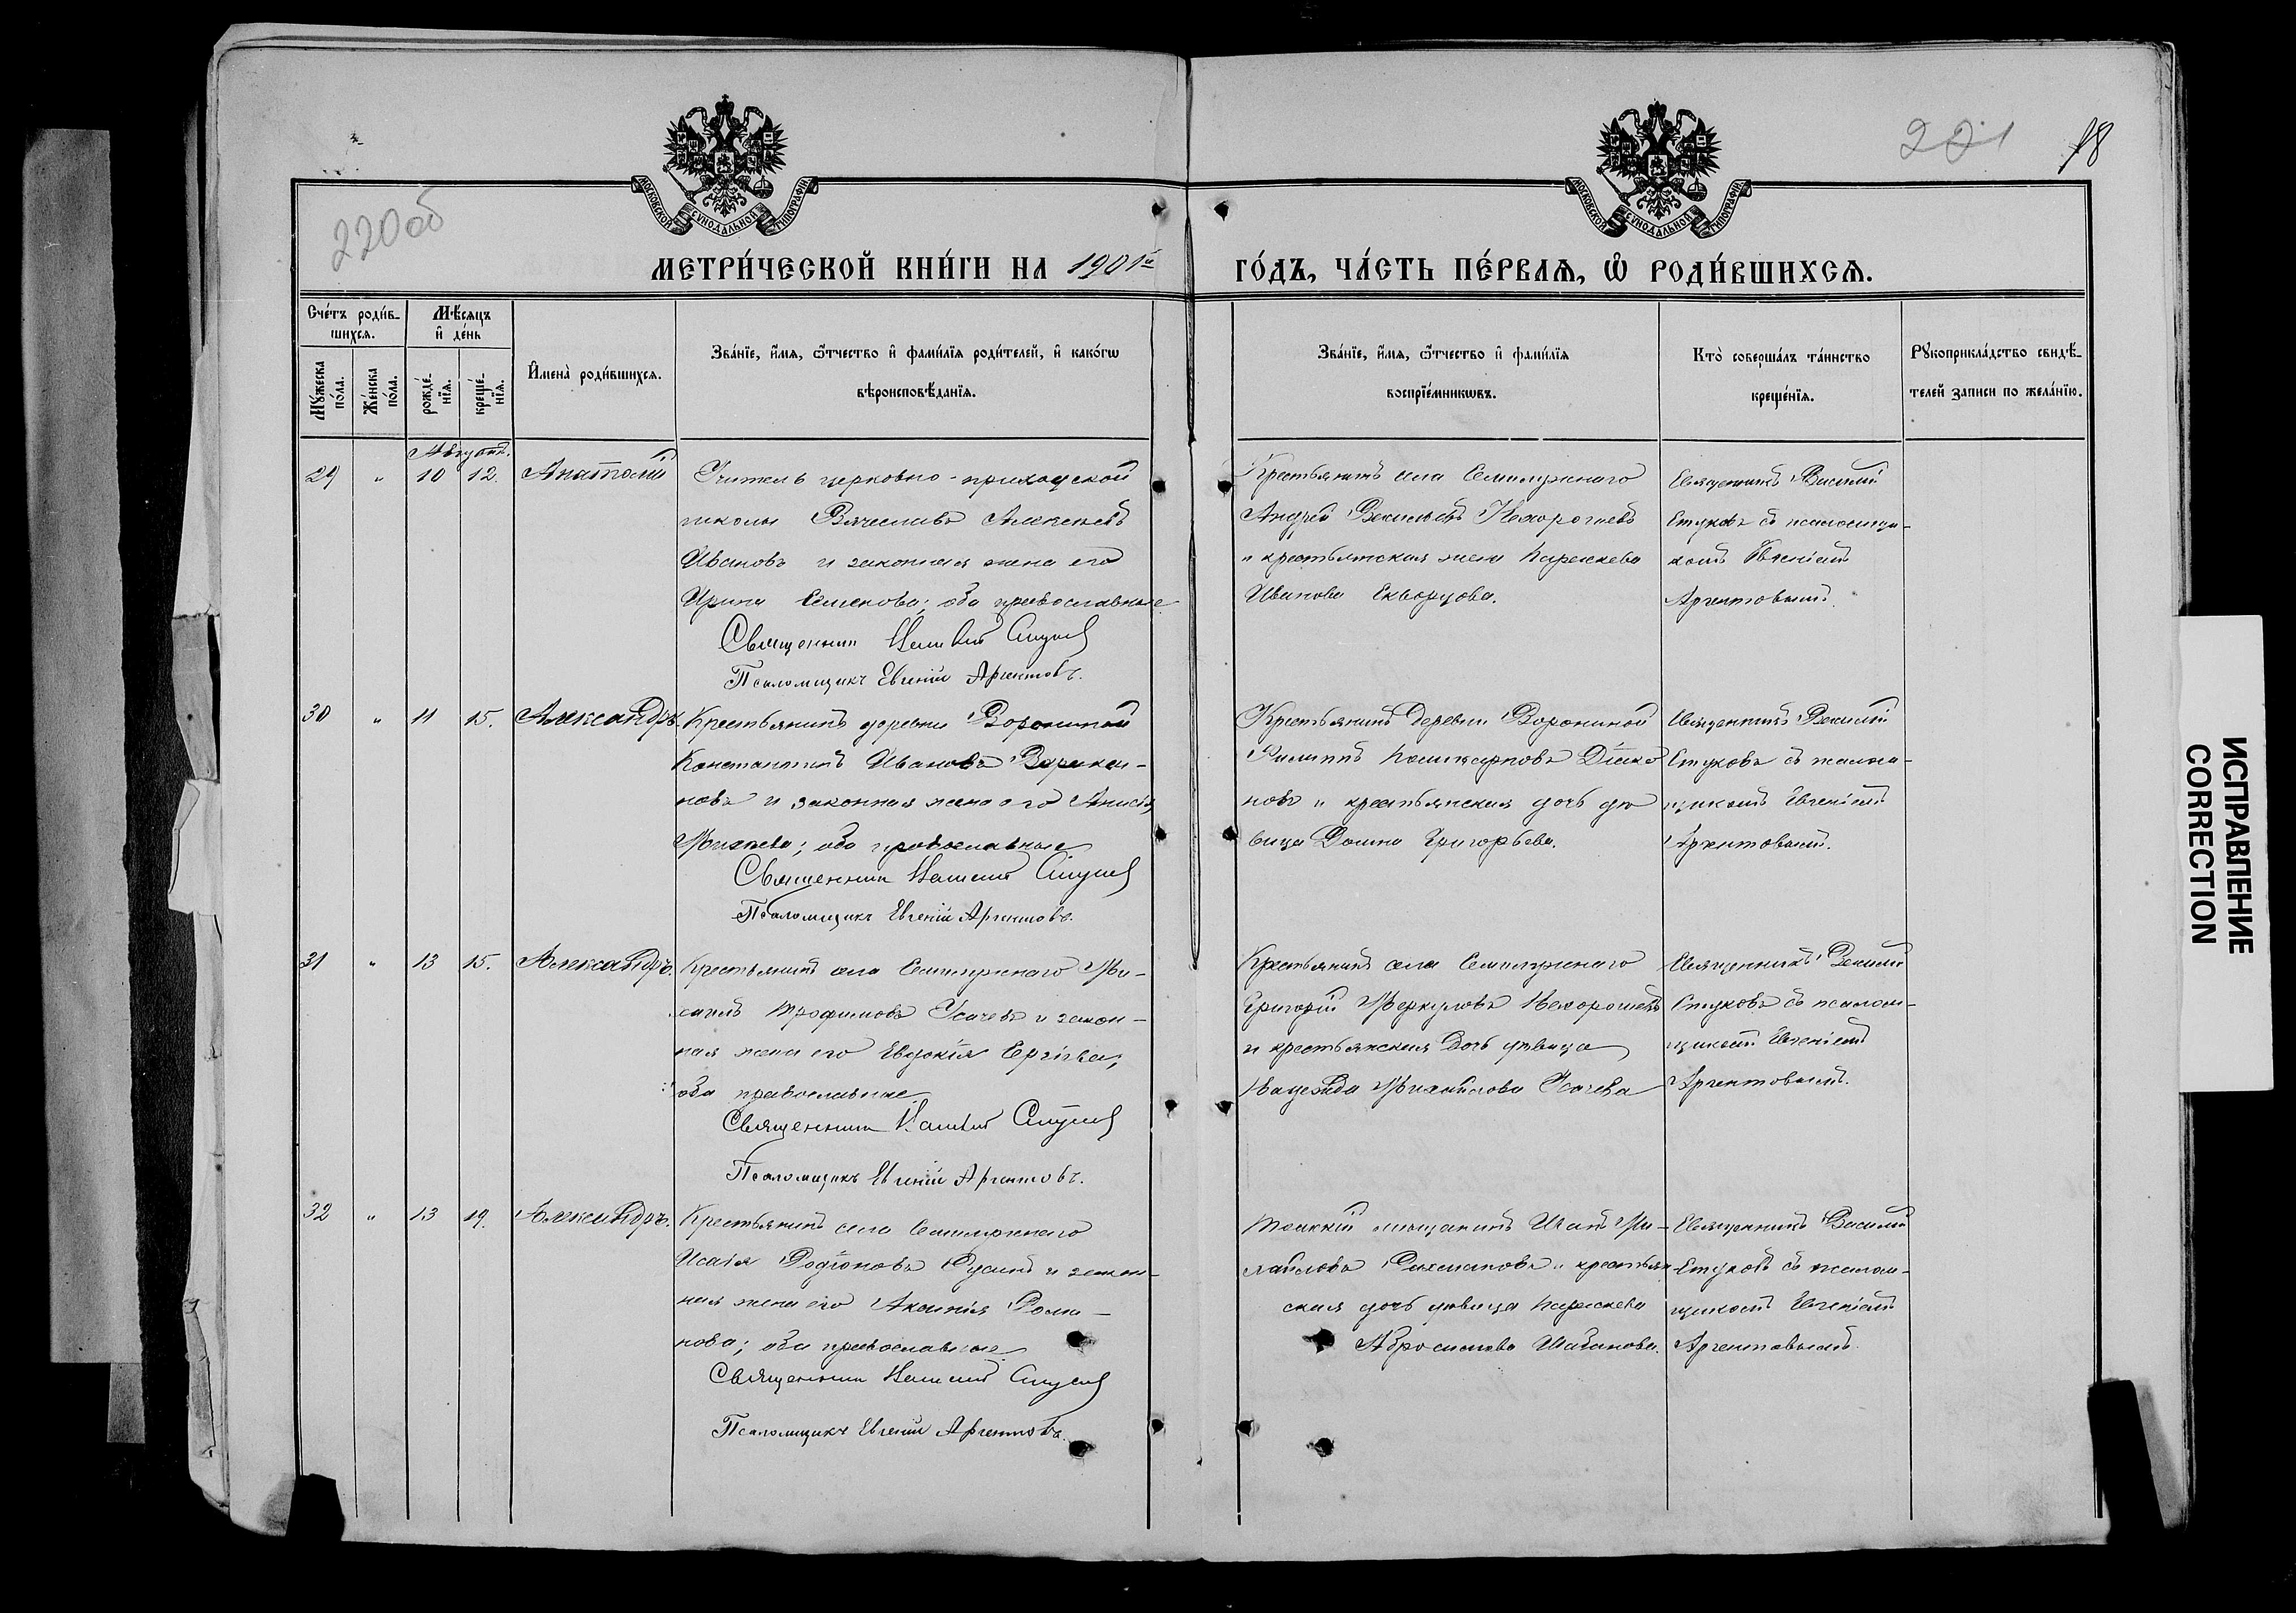 220об
201
18
МОСКОВСКОЙ СѴНОДАЛЬНОЙ ТИПОГРАФІИ
МОСКОВСКОЙ СѴНОДАЛЬНОЙ ТИПОГРАФІИ
МЕТРИ́ЧЕСКОЙ КНИ́ГИ НА 1901й
ГО́ДЪ, ЧА́СТЬ ПЕ́РВАѦ, Ѡ҆ РОДИ́ВШИХСѦ.
Сче́тъ роди́в-
шихсѧ.
Мꙋ́жеска по́ла.
Же́нска по́ла.
Мѣ́сяцъ
и҆ де́нь
рожде́-нїѧ.
креще́-нїѧ.
И҆мена̀ роди́вшихсѧ.
Зва́нїе, и҆́мѧ, ѻ҆́тчество и҆ фами́лїѧ роди́телей, и҆ како́гѡ
вѣроисповѣ́данїѧ.
Зва́нїе, и҆́мѧ, ѻ҆́тчество и҆ фами́лїѧ
воспрїе́мникѡвъ.
Кто̀ соверша́лъ та́инство
креще́нїѧ.
Рꙋкоприкла́дство свидѣ́-
телей записи по жела́нїю.
Августъ.
29 " 10 12. Анатолій
Учитель церковно-приходской
школы Вячеславъ Алексѣевъ
Ивановъ и законная жена его
Ирина Семенова; оба православные
Священникъ Василій Стуковъ
Псаломщикъ Евгеній Аргентовъ.
Крестьянинъ села Семилужнаго
Андрей Васильевъ Нехорошевъ
и крестьянская жена Параскева
Иванова Скворцова.
Священникъ Василій
Стуковъ съ псаломщи-
комъ Евгеніемъ
Аргентовымъ.
30 " 11 15. Александръ
Крестьянинъ деревни Ворониной
Константинъ Ивановъ
новъ и законная жена его Анисія
оба православные
Священникъ Василій Стуковъ
Псаломщикъ Евгеній Аргентовъ.
Крестьянинъ деревни Ворониной
Филиппъ Поликарповъ
новъ и крестьянская дочь дѣ-
вица Домна Григорьева.
Священникъ Василій
Стуковъ съ псалом-
щикомъ Евгеніемъ
Аргентовымъ.
31 " 13 15. Александръ.
Крестьянинъ села Семилужнаго Ми-
хаилъ Трофимовъ Усачевъ и закон-
ная жена его Евдокія Сергіева;
оба православные
Священникъ Василій Стуковъ
Псаломщикъ Евгеній Аргентовъ.
Крестьянинъ села Семилужнаго
Григорій Меркуловъ Нехорошевъ
и крестьянская дочь дѣвица
Надежда Михайлова Усачева
Священникъ Василій
Стуковъ съ псалом-
щикомъ Евгеніемъ
Аргентовымъ.
32 " 13 19. Александръ.
Крестьянинъ села Семилужнаго
Исаія Родіоновъ и закон-
ная жена его Аксинія Рома-
нова; оба православные
Священникъ Василій Стуковъ
Псаломщикъ Евгеній Аргентовъ.
Томскій мѣщанинъ Иванъ Ми-
хайловъ и крестьян-
ская дочь дѣвица Параскева
Абросимова
Священникъ Василій
Стуковъ съ псалом-
щикомъ Евгеніемъ
Аргентовымъ.
ИСПРАВЛЕНИЕ
CORRECTION